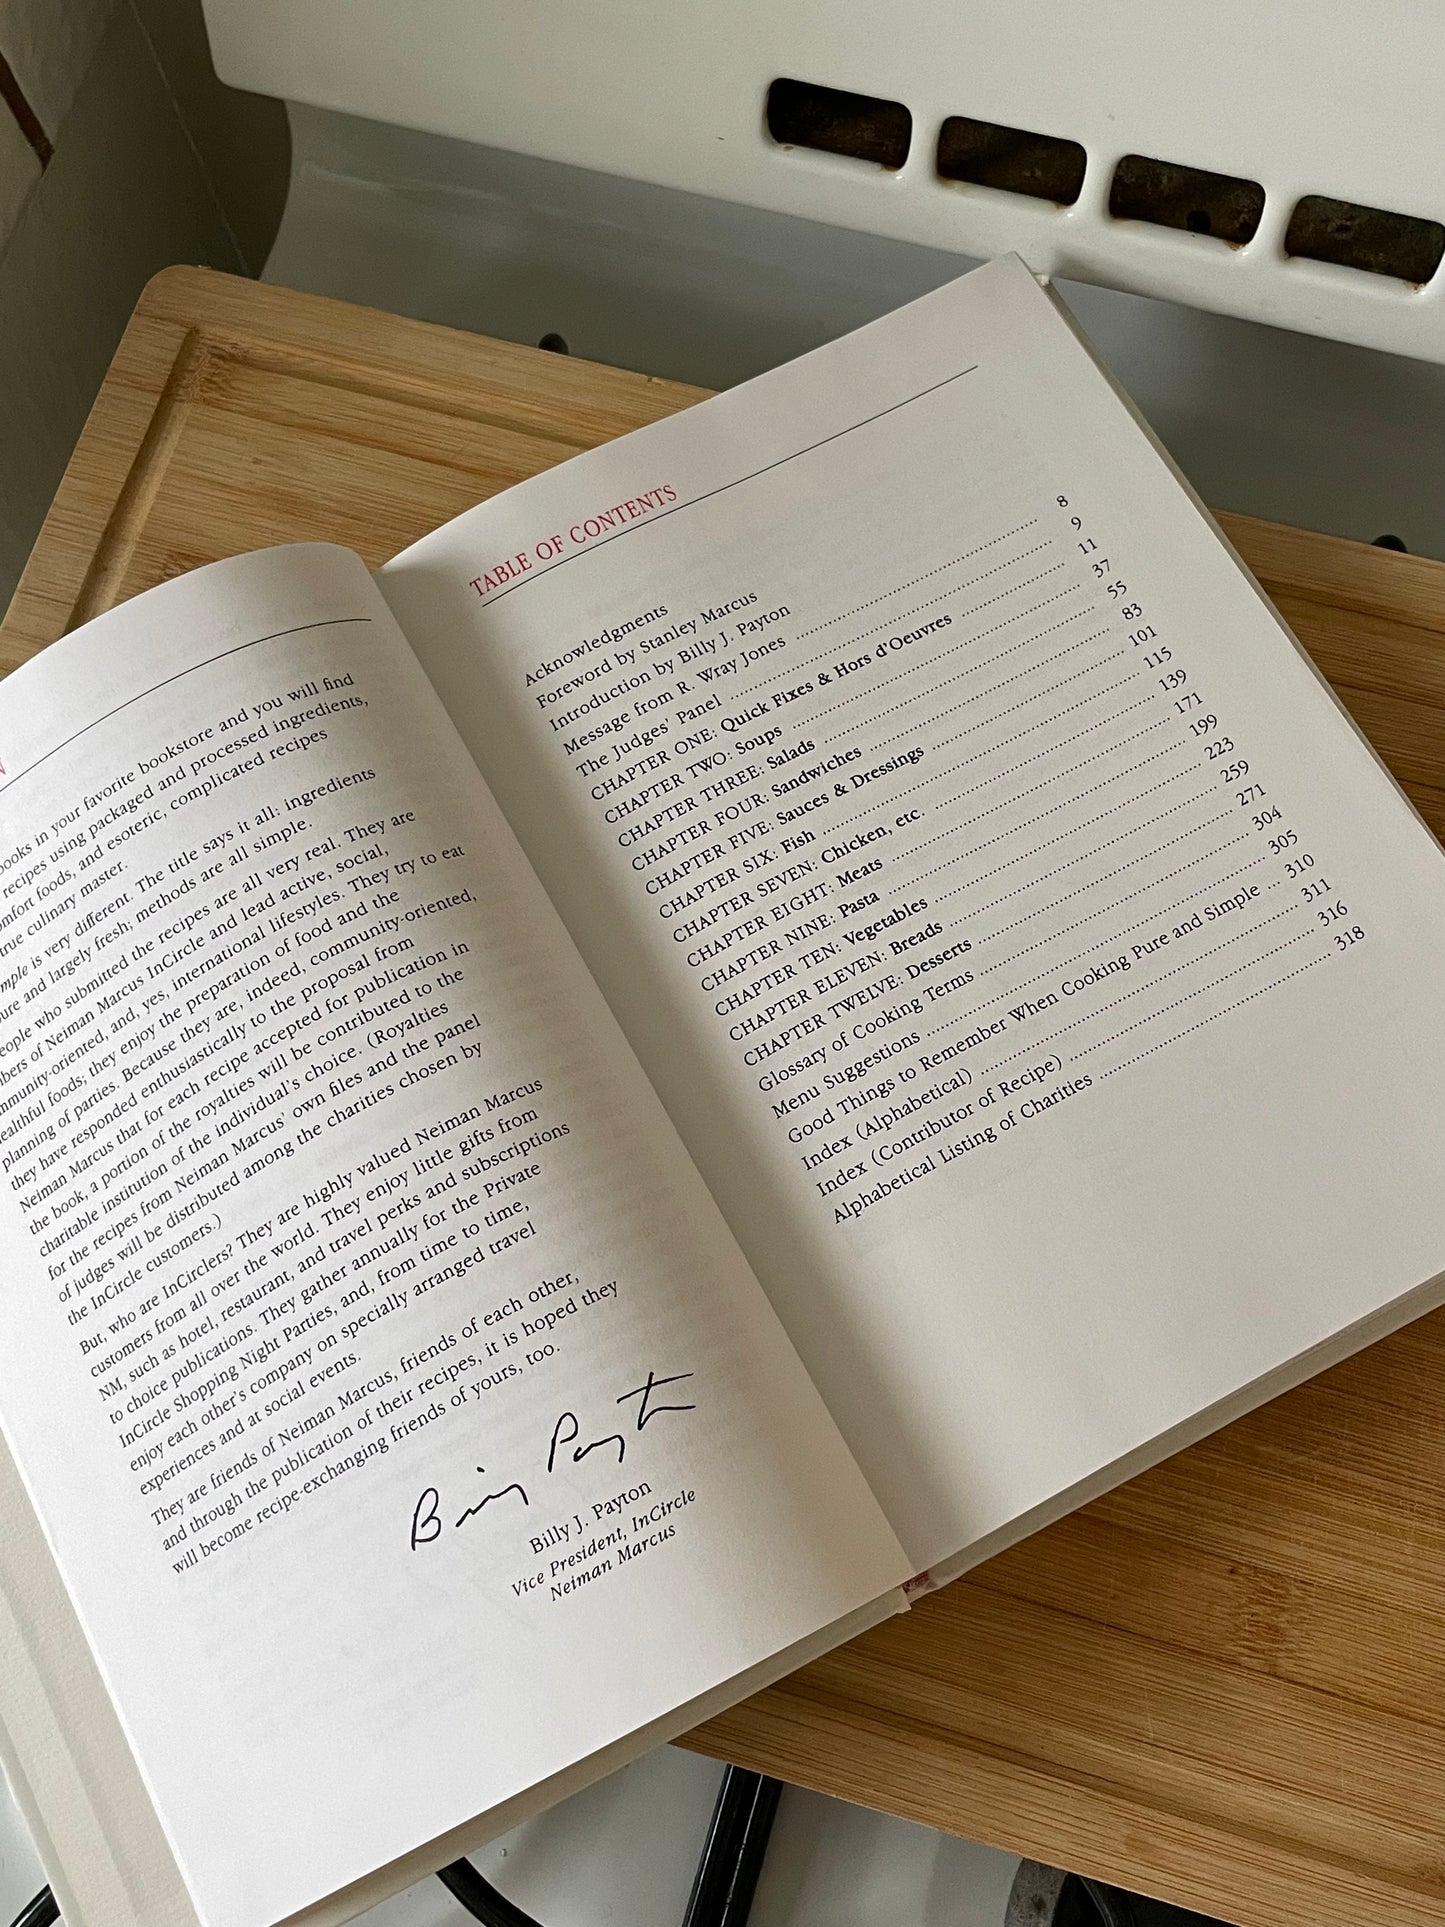 books in your favorite bookstore and you will find
recipes using packaged and processed ingredients,
mfort foods, and esoteric, complicated recipes
true culinary master.
mple is very different. The title says it all: ingredients
ure and largely fresh; methods are all simple.
eople who submitted the recipes are all very real. They are
bers of Neiman Marcus InCircle and lead active, social,
mmunity-oriented, and, yes, international lifestyles. They try to eat
ealthful foods; they enjoy the preparation of food and the
planning of parties. Because they are, indeed, community-oriented,
they have responded enthusiastically to the proposal from
Neiman Marcus that for each recipe accepted for publication in
the book, a portion of the royalties will be contributed to the
charitable institution of the individual's choice. (Royalties
for the recipes from Neiman Marcus' own files and the panel
of judges will be distributed among the charities chosen by
the InCircle customers.)
But, who are InCirclers? They are highly valued Neiman Marcus
customers from all over the world. They enjoy little gifts from
NM, such as hotel, restaurant, and travel perks and subscriptions
to choice publications. They gather annually for the Private
InCircle Shopping Night Parties, and, from time to time,
enjoy each other's company on specially arranged travel
experiences and at social events.
They are friends of Neiman Marcus, friends of each other,
and through the publication of their recipes, it is hoped they
will become recipe-exchanging friends of yours, too.
Billy Payton
Billy J. Payton
Vice President, InCircle
Neiman Marcus
TABLE OF CONTENTS
Acknowledgments
Foreword by Stanley Marcus
Introduction by Billy J. Payton
Message from R. Wray Jones ........ 8
The Judges' Panel ........ 9
CHAPTER ONE: Quick Fixes & Hors d'Oeuvres ........ 11
CHAPTER TWO: Soups ........ 37
CHAPTER THREE: Salads ........ 55
CHAPTER FOUR: Sandwiches ........ 83
CHAPTER FIVE: Sauces & Dressings ........ 101
CHAPTER SIX: Fish ........ 115
CHAPTER SEVEN: Chicken, etc. ........ 139
CHAPTER EIGHT: Meats ........ 171
CHAPTER NINE: Pasta ........ 199
CHAPTER TEN: Vegetables ........ 223
CHAPTER ELEVEN: Breads ........ 259
CHAPTER TWELVE: Desserts ........ 271
Glossary of Cooking Terms ........ 304
Menu Suggestions ........ 305
Good Things to Remember When Cooking Pure and Simple ... 310
Index (Alphabetical) ........ 311
Index (Contributor of Recipe) ........ 316
Alphabetical Listing of Charities ........ 318